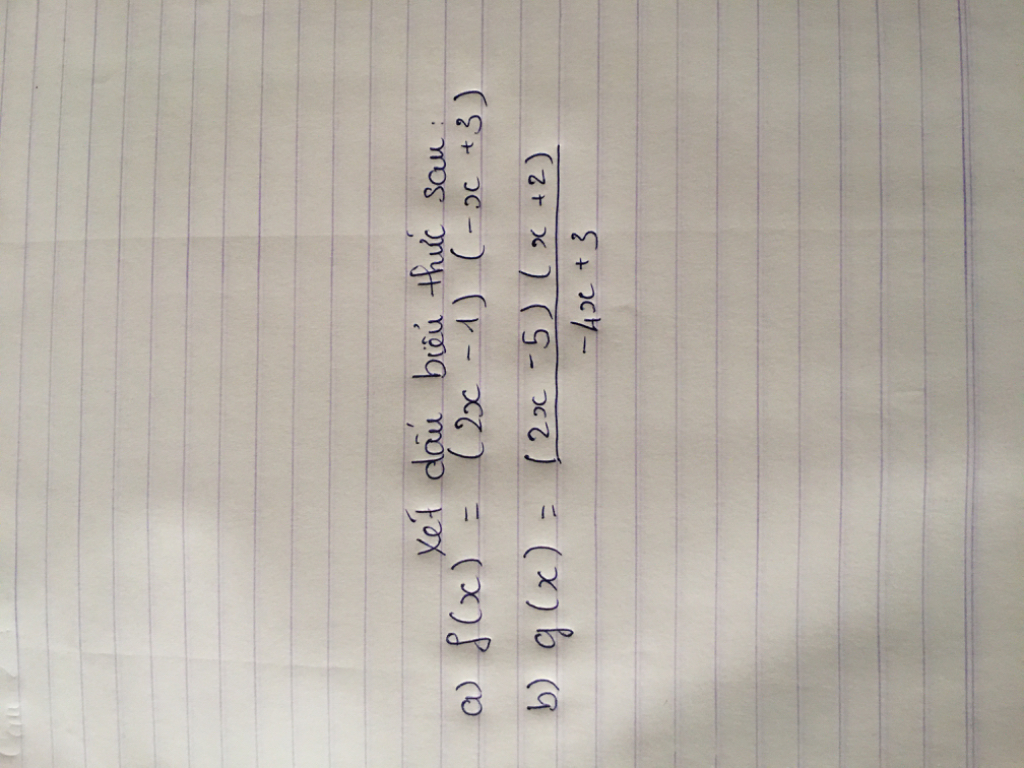 Xét dấu biểu thức sau:
a) f(x) = (2x - 1) (-x + 3)
b) g(x) = (2x - 5) (x + 2)
-4x + 3